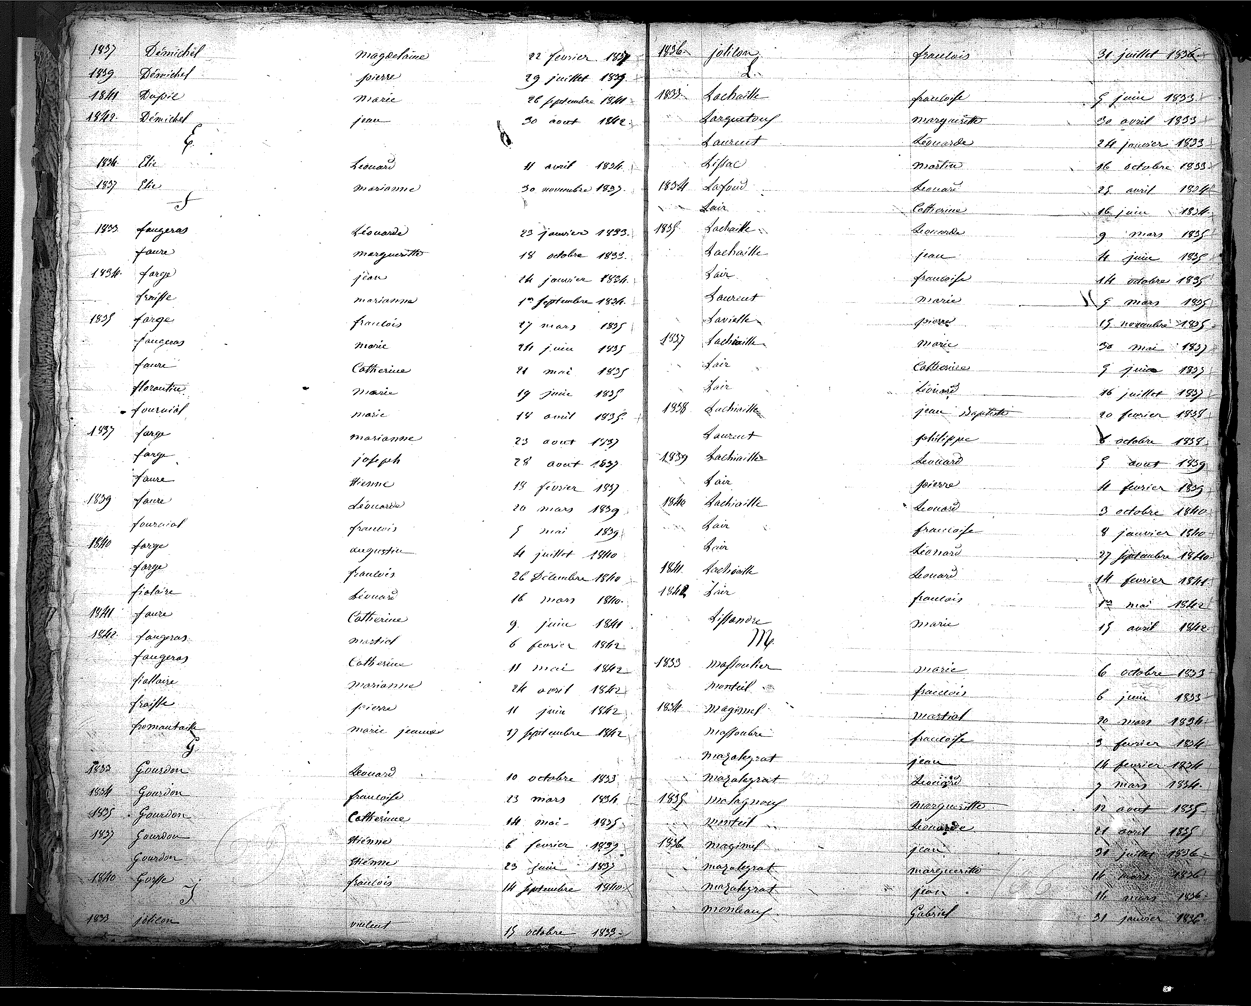 1837 Démichel magdelaine 22 fevrier 1837
1839 Démichel pierre 29 juillet 1839
1841 Dupic marie 26 septembre 1841
1842 Démichel jean 30 aout 1842
E
1834 Elie Léonard 11 avril 1834
1837 Elie marianne 30 novembre 1837
f
1833 faugeras Léonarde 23 janvier 1833
faure margueritte 18 octobre 1833
1834 farge jean 14 janvier 1834
fraisse marianne 1er septembre 1834
1835 farge francois 27 mars 1835
faugeras marie 24 juin 1835
faure Catherine 21 mai 1835
florentin marie 19 juin 1835
fournial marie 18 avril 1835
1837 farge marianne 23 aout 1837
farge joseph 28 aout 1837
faure Etienne 18 février 1837
1839 faure Léonarde 20 mars 1839
fournial francois 5 mai 1839
1840 farge augustin 4 juillet 1840
farge francois 26 Décembre 1840
fialaire Léonard 16 mars 1840
1841 faure Catherine 9 juin 1841
1842 faugeras martial 6 fevrier 1842
faugeras Catherine 11 mai 1842
fiallaire marianne 24 avril 1842
fraisse pierre 11 juin 1842
fromentail marie jeanne 17 septembre 1842
G
1833 Gourdon Léonard 10 octobre 1833
1834 Gourdon francoise 23 mars 1834
1835 Gourdon Catherine 14 mai 1835
1837 Gourdon Etienne 6 fevrier 1837
Gourdon Etienne 23 juin 1837
1840 francois 14 septembre 1840
j
1833 joliton vincent 15 octobre 1833
1836 joliton francois 31 juillet 1836
L
1833 Lachaille francoise 5 juin 1833
margueritte 30 avril 1833
Laurent Léonarde 24 janvier 1833
Lissac martin 16 octobre 1833
1834 Lafond Leonard 25 avril 1834
Lair Catherine 16 juin 1834
1835 Lachaille Leonarde 9 mars 1835
Lachaille jean 4 juin 1835
Lair francoise 14 octobre 1835
Laurent marie 5 mars 1835
Lavielle pierre 15 novembre 1835
1837 Lachiaille marie 30 mai 1837
Lair Catherine 5 juin 1837
Lair Léonard 16 juillet 1837
1838 Lachiaille jean Baptiste 20 fevrier 1838
Laurent philippe 6 octobre 1838
1839 Lachiaille Leonard 5 aout 1839
Lair pierre 11 fevrier 1839
1840 Lachiaille Leonard 3 octobre 1840
Lair francoise 8 janvier 1840
Lair Léonard 27 septembre 1840
1841 Lachiaille Leonard 14 fevrier 1841
1842 Lair francois 1er mai 1842
Lissandre marie 15 avril 1842
M
1833 massoulier marie 6 octobre 1833
monteil francois 6 juin 1833
1834 magimel martial 20 mars 1834
massoubre francoise 3 fevrier 1834
mazaleyrat jean 14 fevrier 1834
mazaleyrat Léonard 7 mars 1834
1835 malagnoux margueritte 12 aout 1835
monteil Leonarde 21 avril 1835
1836 magimel jean 30 juillet 1836
mazaleyrat margueritte 14 mars 1836
mazaleyrat jean 11 mars 1836
Gabriel 31 janvier 1836